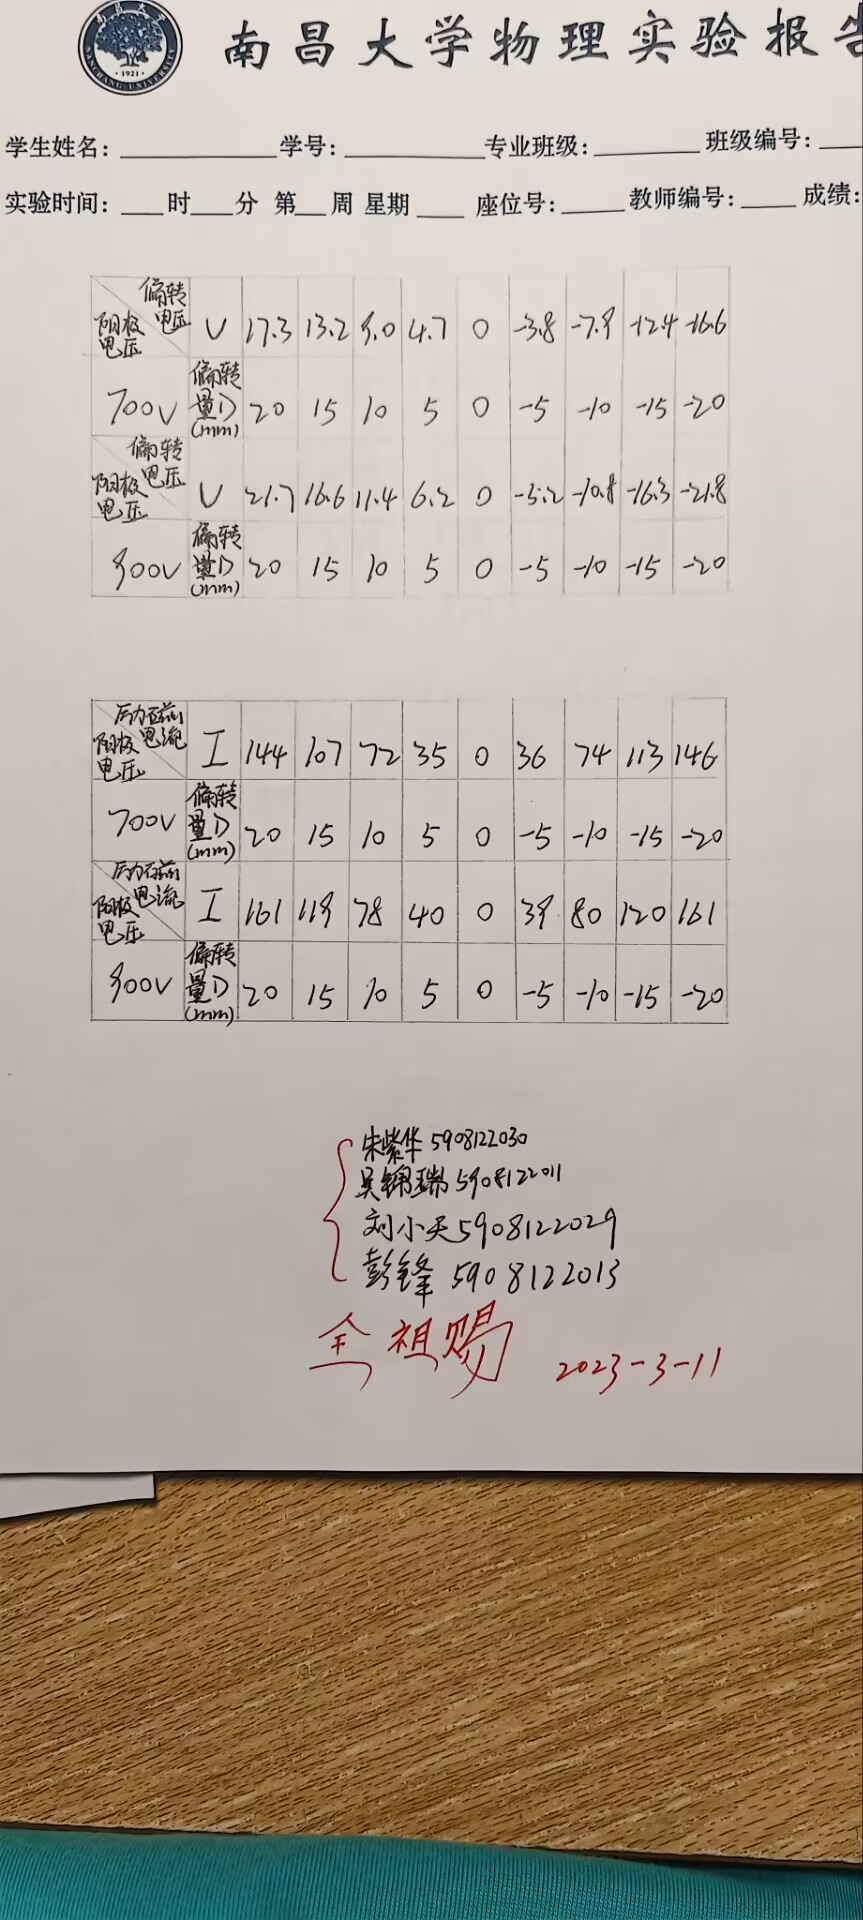 南昌大学
NANCHANG UNIVERSITY
·1921·
南昌大学物理实验报告
学生姓名： 学号： 专业班级： 班级编号：
实验时间： 时 分 第 周 星期 座位号： 教师编号： 成绩：
偏转电压 阳极电压 U 17.3 13.2 9.0 4.7 0 -3.8 -7.9 -12.4 -16.6
700V 偏转量D(mm) 20 15 10 5 0 -5 -10 -15 -20
偏转电压 阳极电压 U 21.7 16.6 11.4 6.2 0 -5.2 -10.8 -16.3 -21.8
900V 偏转量D(mm) 20 15 10 5 0 -5 -10 -15 -20
励磁电流 阳极电压 I 144 107 72 35 0 36 74 113 146
700V 偏转量D(mm) 20 15 10 5 0 -5 -10 -15 -20
励磁电流 阳极电压 I 161 119 78 40 0 39 80 120 161
900V 偏转量D(mm) 20 15 10 5 0 -5 -10 -15 -20
朱紫华 5908122030
吴锦瑞 5908122011
刘小天 5908122029
彭锋 5908122013
全祖赐 2023-3-11